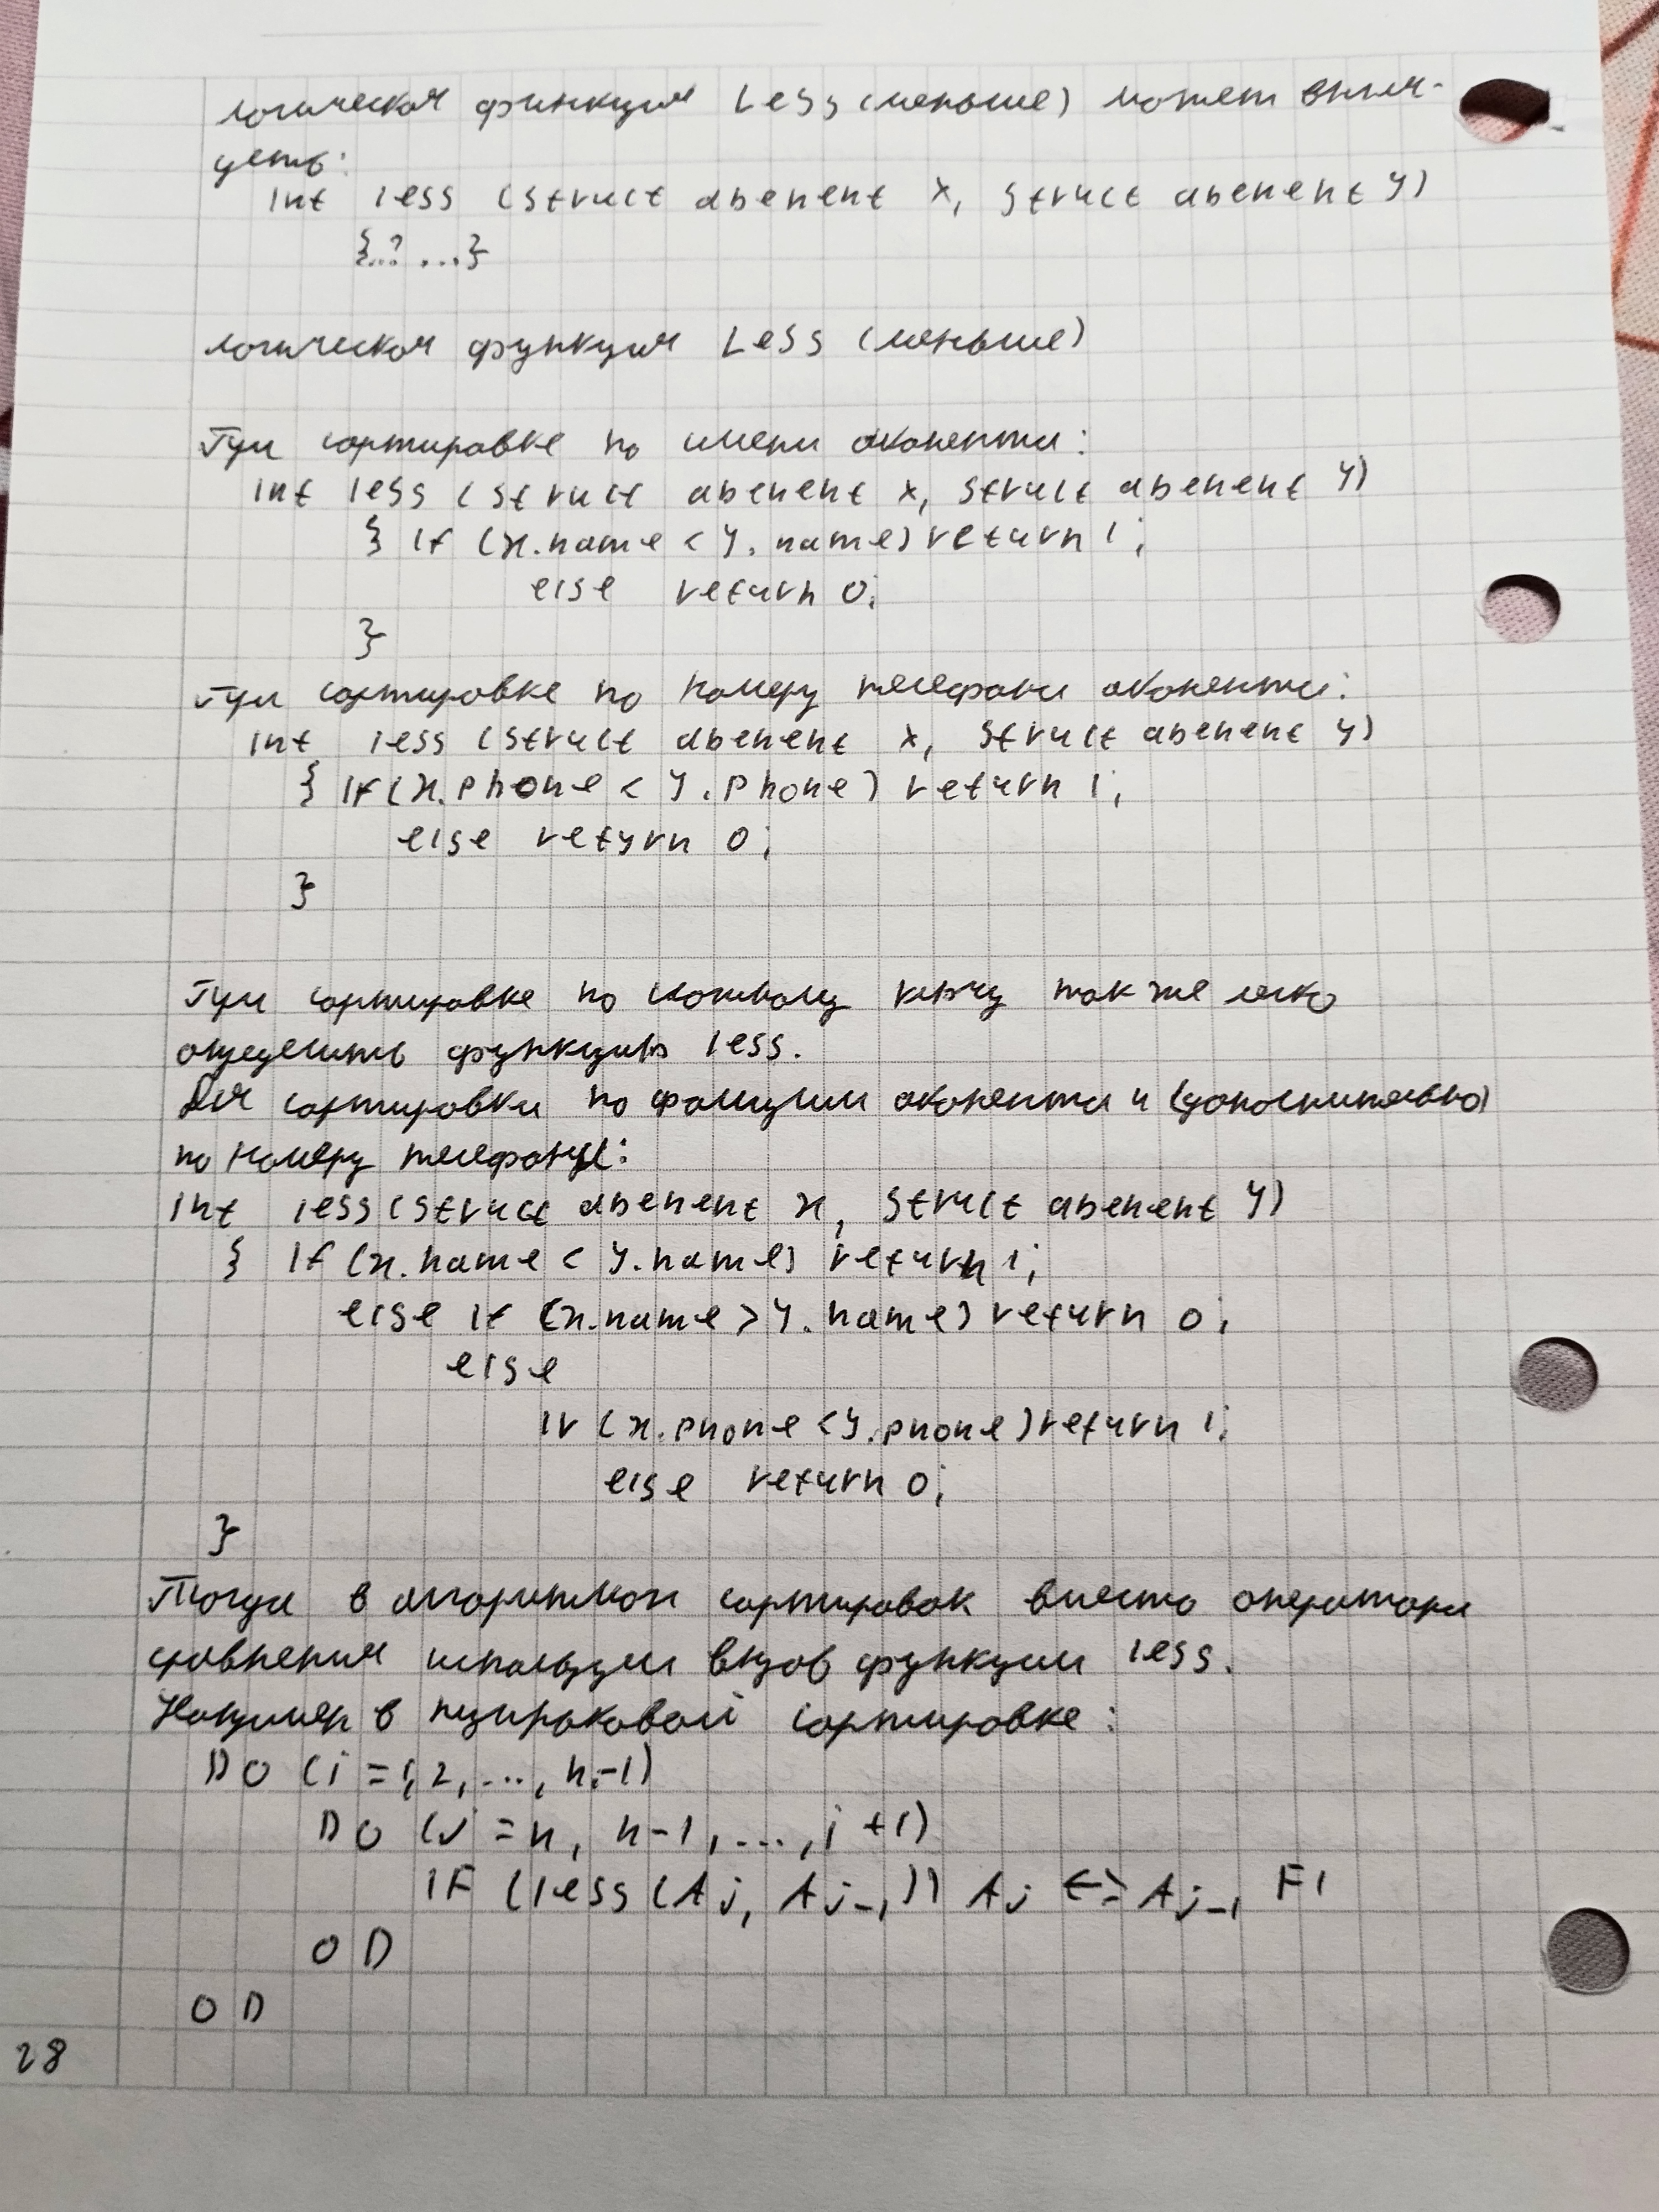 логическая функция Less (меньше) может выгля-
деть:
int less (struct abenent x, struct abenent y)
{..? ...}
логическая функция Less (меньше)
При сортировке по имени абонента:
int less (struct abenent x, struct abenent y)
{ if (x.name < y.name) return 1;
else return 0;
}
При сортировке по номеру телефона абонента:
int less (struct abenent x, struct abenent y)
{ if (x.phone < y.phone) return 1;
else return 0;
}
При сортировке по сложному ключу также легко
определить функцию less.
Для сортировки по фамилии абонента и (дополнительно)
по номеру телефону:
int less (struct abenent x, struct abenent y)
{ if (x.name < y.name) return 1;
else if (x.name > y.name) return 0;
else
if (x.phone < y.phone) return 1;
else return 0;
}
Тогда в алгоритмах сортировок вместо оператора
сравнения используем вызов функции less.
Например в пузырьковой сортировке:
DO (i = 1, 2, ..., n-1)
DO (j = n, n-1, ..., i+1)
IF (less (Aj, Aj-1)) Aj <=> Aj-1 FI
OD
OD
28